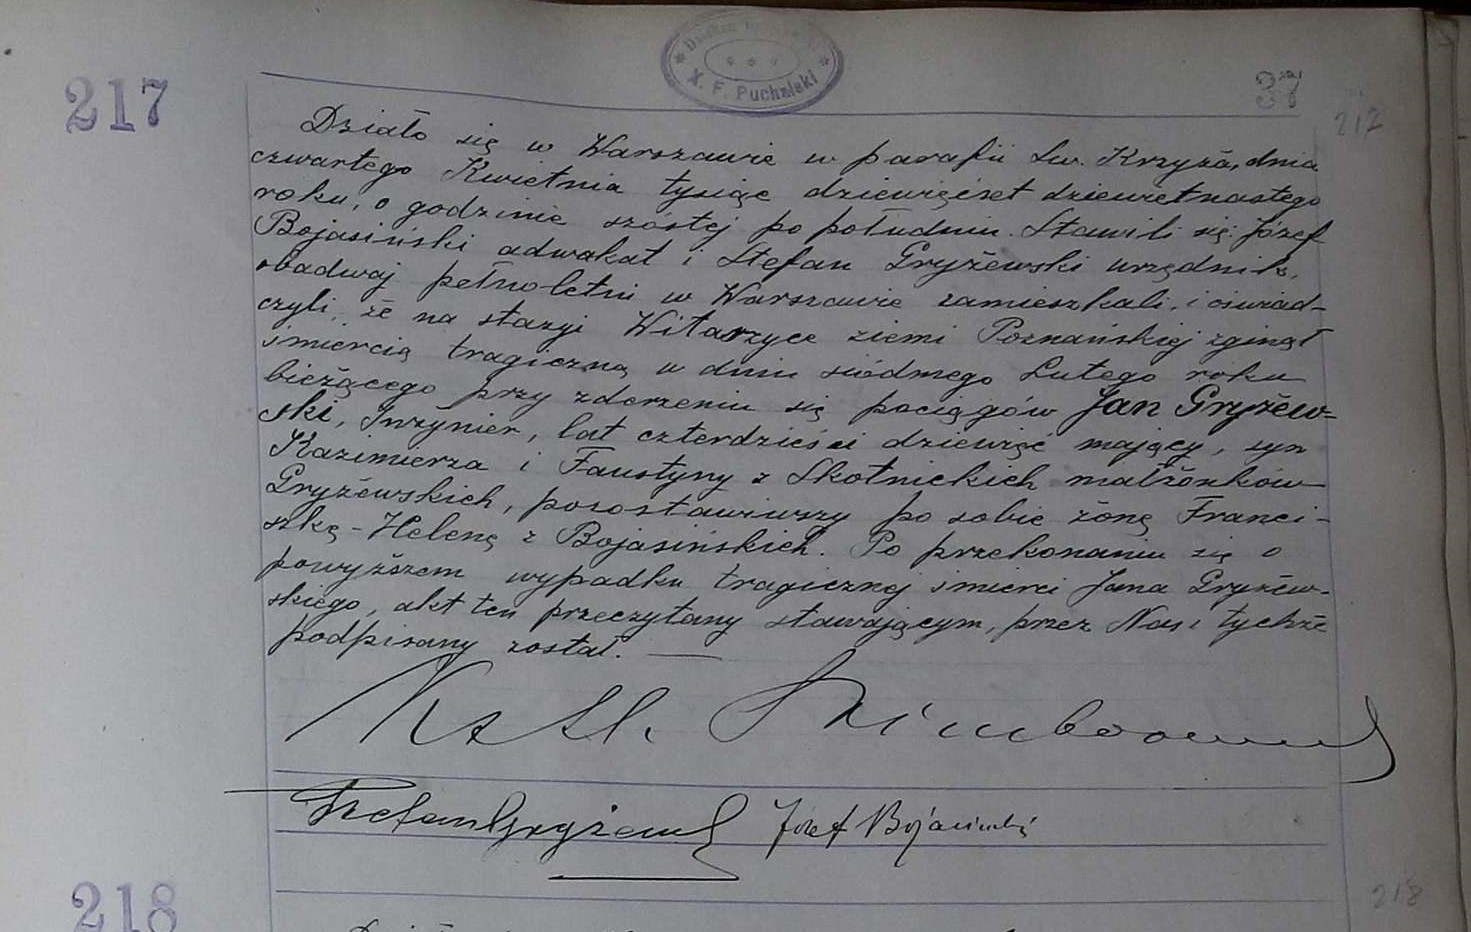 217
X. F. Puchalski
37
217
Działo się w Warszawie w parafii Św. Krzyża, dnia
czwartego Kwietnia tysiąc dziewięćset dziewiętnastego
roku, o godzinie szóstej po południu. Stawili się: Józef
Bojasiński adwokat i Stefan Gryżewski urzędnik,
obadwaj pełnoletni w Warszawie zamieszkali, i oświad-
czyli, że na stacyi Witaszyce ziemi Poznańskiej zginął
śmiercią tragiczną w dniu siódmego Lutego roku
bieżącego przy zderzeniu się pociągów Jan Gryżew-
ski, Inżynier, lat czterdzieści dziewięć mający, syn
Kazimierza i Faustyny z Skotnickich małżonków
Gryżewskich, pozostawiwszy po sobie żonę Franci-
szkę-Helenę z Bojasińskich. Po przekonaniu się o
powyższem wypadku tragicznej śmierci Jana Gryżew-
skiego, akt ten przeczytany stawającym, przez Nas i tychże
podpisany został. —
Stefan Gryżewski Józef Bojasiński
218
218